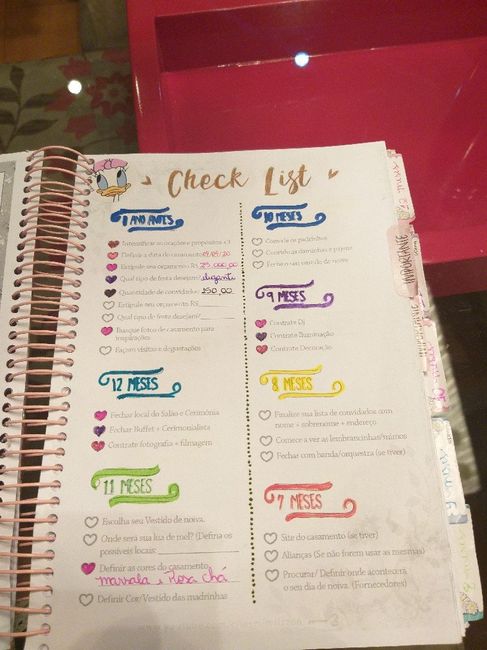 Check List
1 ANO ANTES
Intensificar as orações e propósitos <3
Definir a data do casamento
Estipule seu orçamento R$ 25.000,00
Qual tipo de festa desejam? elegante
Quantidade de convidados: 150,00
Estipule seu orçamento R$
Qual tipo de festa desejam?
Busque fotos de casamento para
inspirações
Façam visitas e degustações
12 MESES
Fechar local do Salão e Cerimônia
Fechar Buffet e Cerimonialista
Contrate fotografia + filmagem
11 MESES
Escolha seu Vestido de noiva.
Onde será sua lua de mel? (Defina os
possíveis locais:
Definir as cores do casamento
marsala e Rosa chá
Definir Cor/Vestido das madrinhas
10 MESES
Convide os padrinhos
Convide as daminhas e pajens
9 MESES
Contrate Dj
Contrate Iluminação
Contrate Decoração
8 MESES
Finalize sua lista de convidados com
nome + sobrenome + endereço.
Comece a ver as lembrancinhas/mimos
Fechar com banda/orquestra (se tiver)
7 MESES
Site do casamento (se tiver)
Alianças (Se não forem usar as mesmas)
Procurar/ Definir onde acontecerá
o seu dia de noiva. (Fornecedores)
IMPORTANTE